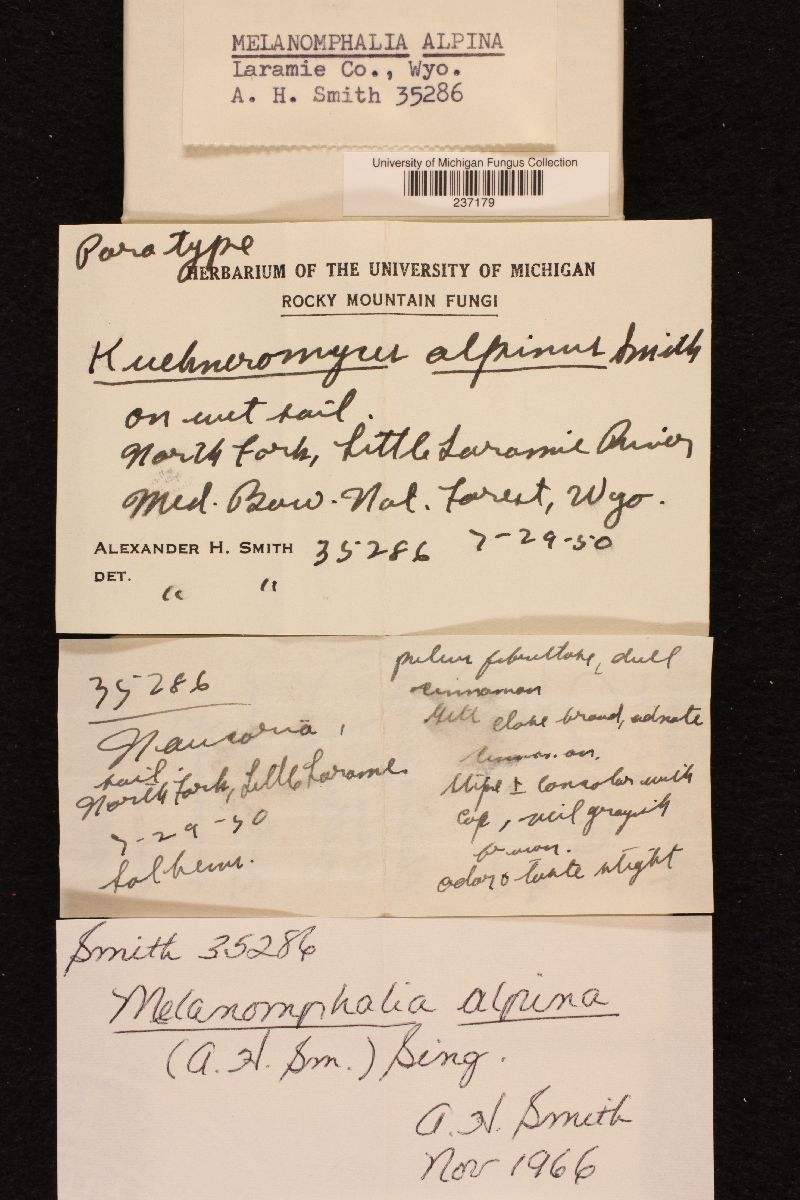 MELANOMPHALIA ALPINA
Laramie Co., Wyo.
A. H. Smith 35286
University of Michigan Fungus Collection
237179
Paratype
HERBARIUM OF THE UNIVERSITY OF MICHIGAN
ROCKY MOUNTAIN FUNGI
Kuehneromyces alpinus Smith
on wet soil.
North Fork, Little Laramie River
Med. Bow. Nat. Forest, Wyo.
ALEXANDER H. SMITH 35286 7-29-50
DET. " "
35286
Naucoria,
soil.
North Fork, Little Laramie
7-29-50
Solheim.
pileus fibrillose, dull
cinnamon
Gills close broad, adnate
cinnamon.
Stipe ± concolor with
cap, veil grayish
brown.
odor & taste slight
Smith 35286
Melanomphalia alpina
(A. H. Sm.) Sing.
A. H. Smith
Nov 1966